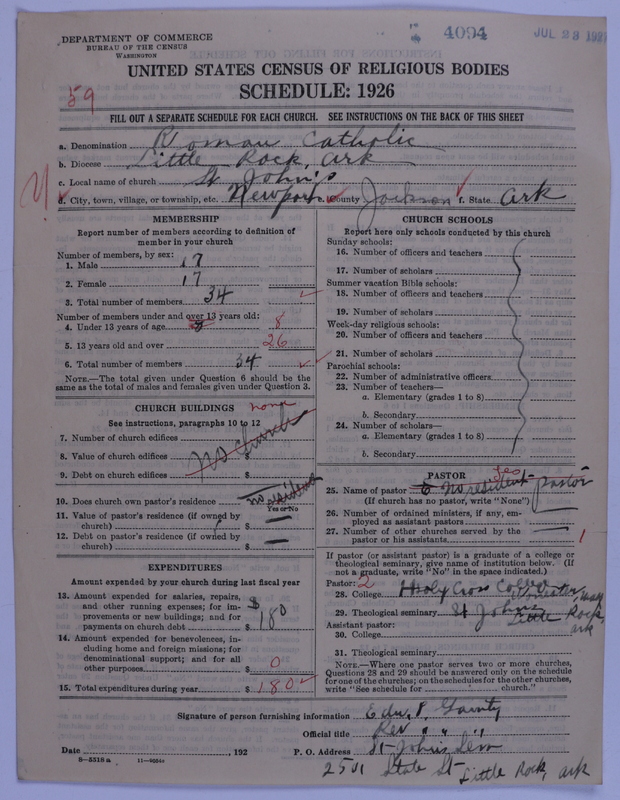 DEPARTMENT OF COMMERCE
BUREAU OF THE CENSUS
WASHINGTON
4094
JUL 23 192
UNITED STATES CENSUS OF RELIGIOUS BODIES
SCHEDULE: 1926
59
FILL OUT A SEPARATE SCHEDULE FOR EACH CHURCH. SEE INSTRUCTIONS ON THE BACK OF THIS SHEET
a. Denomination Roman Catholic
b. Diocese Little Rock, Ark
c. Local name of church St John's
d. City, town, village, or township, etc. Newport County Jackson f. State Ark
MEMBERSHIP
Report number of members according to definition of
member in your church
Number of members, by sex:
1. Male 17
2. Female 17
3. Total number of members 34
Number of members under and over 13 years old:
4. Under 13 years of age 8
5. 13 years old and over 26
6. Total number of members 34
NOTE.—The total given under Question 6 should be the
same as the total of males and females given under Question 3.
CHURCH BUILDINGS none
See instructions, paragraphs 10 to 12
7. Number of church edifices
8. Value of church edifices no church
9. Debt on church edifices $
10. Does church own pastor's residence no resident
Yes or No
11. Value of pastor's residence (if owned by
church) $ —
12. Debt on pastor's residence (if owned by
church) $ —
EXPENDITURES
Amount expended by your church during last fiscal year
13. Amount expended for salaries, repairs,
and other running expenses; for im-
provements or new buildings; and for
payments on church debt $ 180
14. Amount expended for benevolences, in-
cluding home and foreign missions; for
denominational support; and for all
other purposes $ 0
15. Total expenditures during year $ 180
CHURCH SCHOOLS
Report here only schools conducted by this church
Sunday schools:
16. Number of officers and teachers
17. Number of scholars
Summer vacation Bible schools:
18. Number of officers and teachers
19. Number of scholars
Week-day religious schools:
20. Number of officers and teachers
21. Number of scholars
Parochial schools:
22. Number of administrative officers
23. Number of teachers—
a. Elementary (grades 1 to 8)
b. Secondary
24. Number of scholars—
a. Elementary (grades 1 to 8)
b. Secondary
PASTOR yes
25. Name of pastor No resident pastor
(If church has no pastor, write "None")
26. Number of ordained ministers, if any, em-
ployed as assistant pastors
27. Number of other churches served by the
pastor or his assistants — 1
If pastor (or assistant pastor) is a graduate of a college or
theological seminary, give name of institution below. (If
not a graduate, write "No" in the space indicated.)
Pastor: 2
28. College Holy Cross College Worcester, Mass
29. Theological seminary St Johns Little Rock, Ark
Assistant pastor:
30. College
31. Theological seminary
NOTE.—Where one pastor serves two or more churches,
Questions 28 and 29 should be answered only on the schedule
for one of the churches; on the schedules for the other churches,
write "See schedule for church."
Signature of person furnishing information
Official title Rev
Date , 192 P. O. Address St John's Sem
8—5318 a
2501 State St Little Rock, Ark